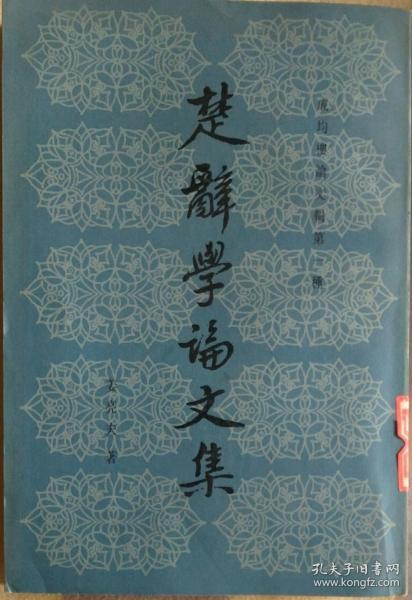 成均樓論文輯第一種
楚辭學論文集
姜亮夫著
孔夫子旧书网
www.kongfz.com